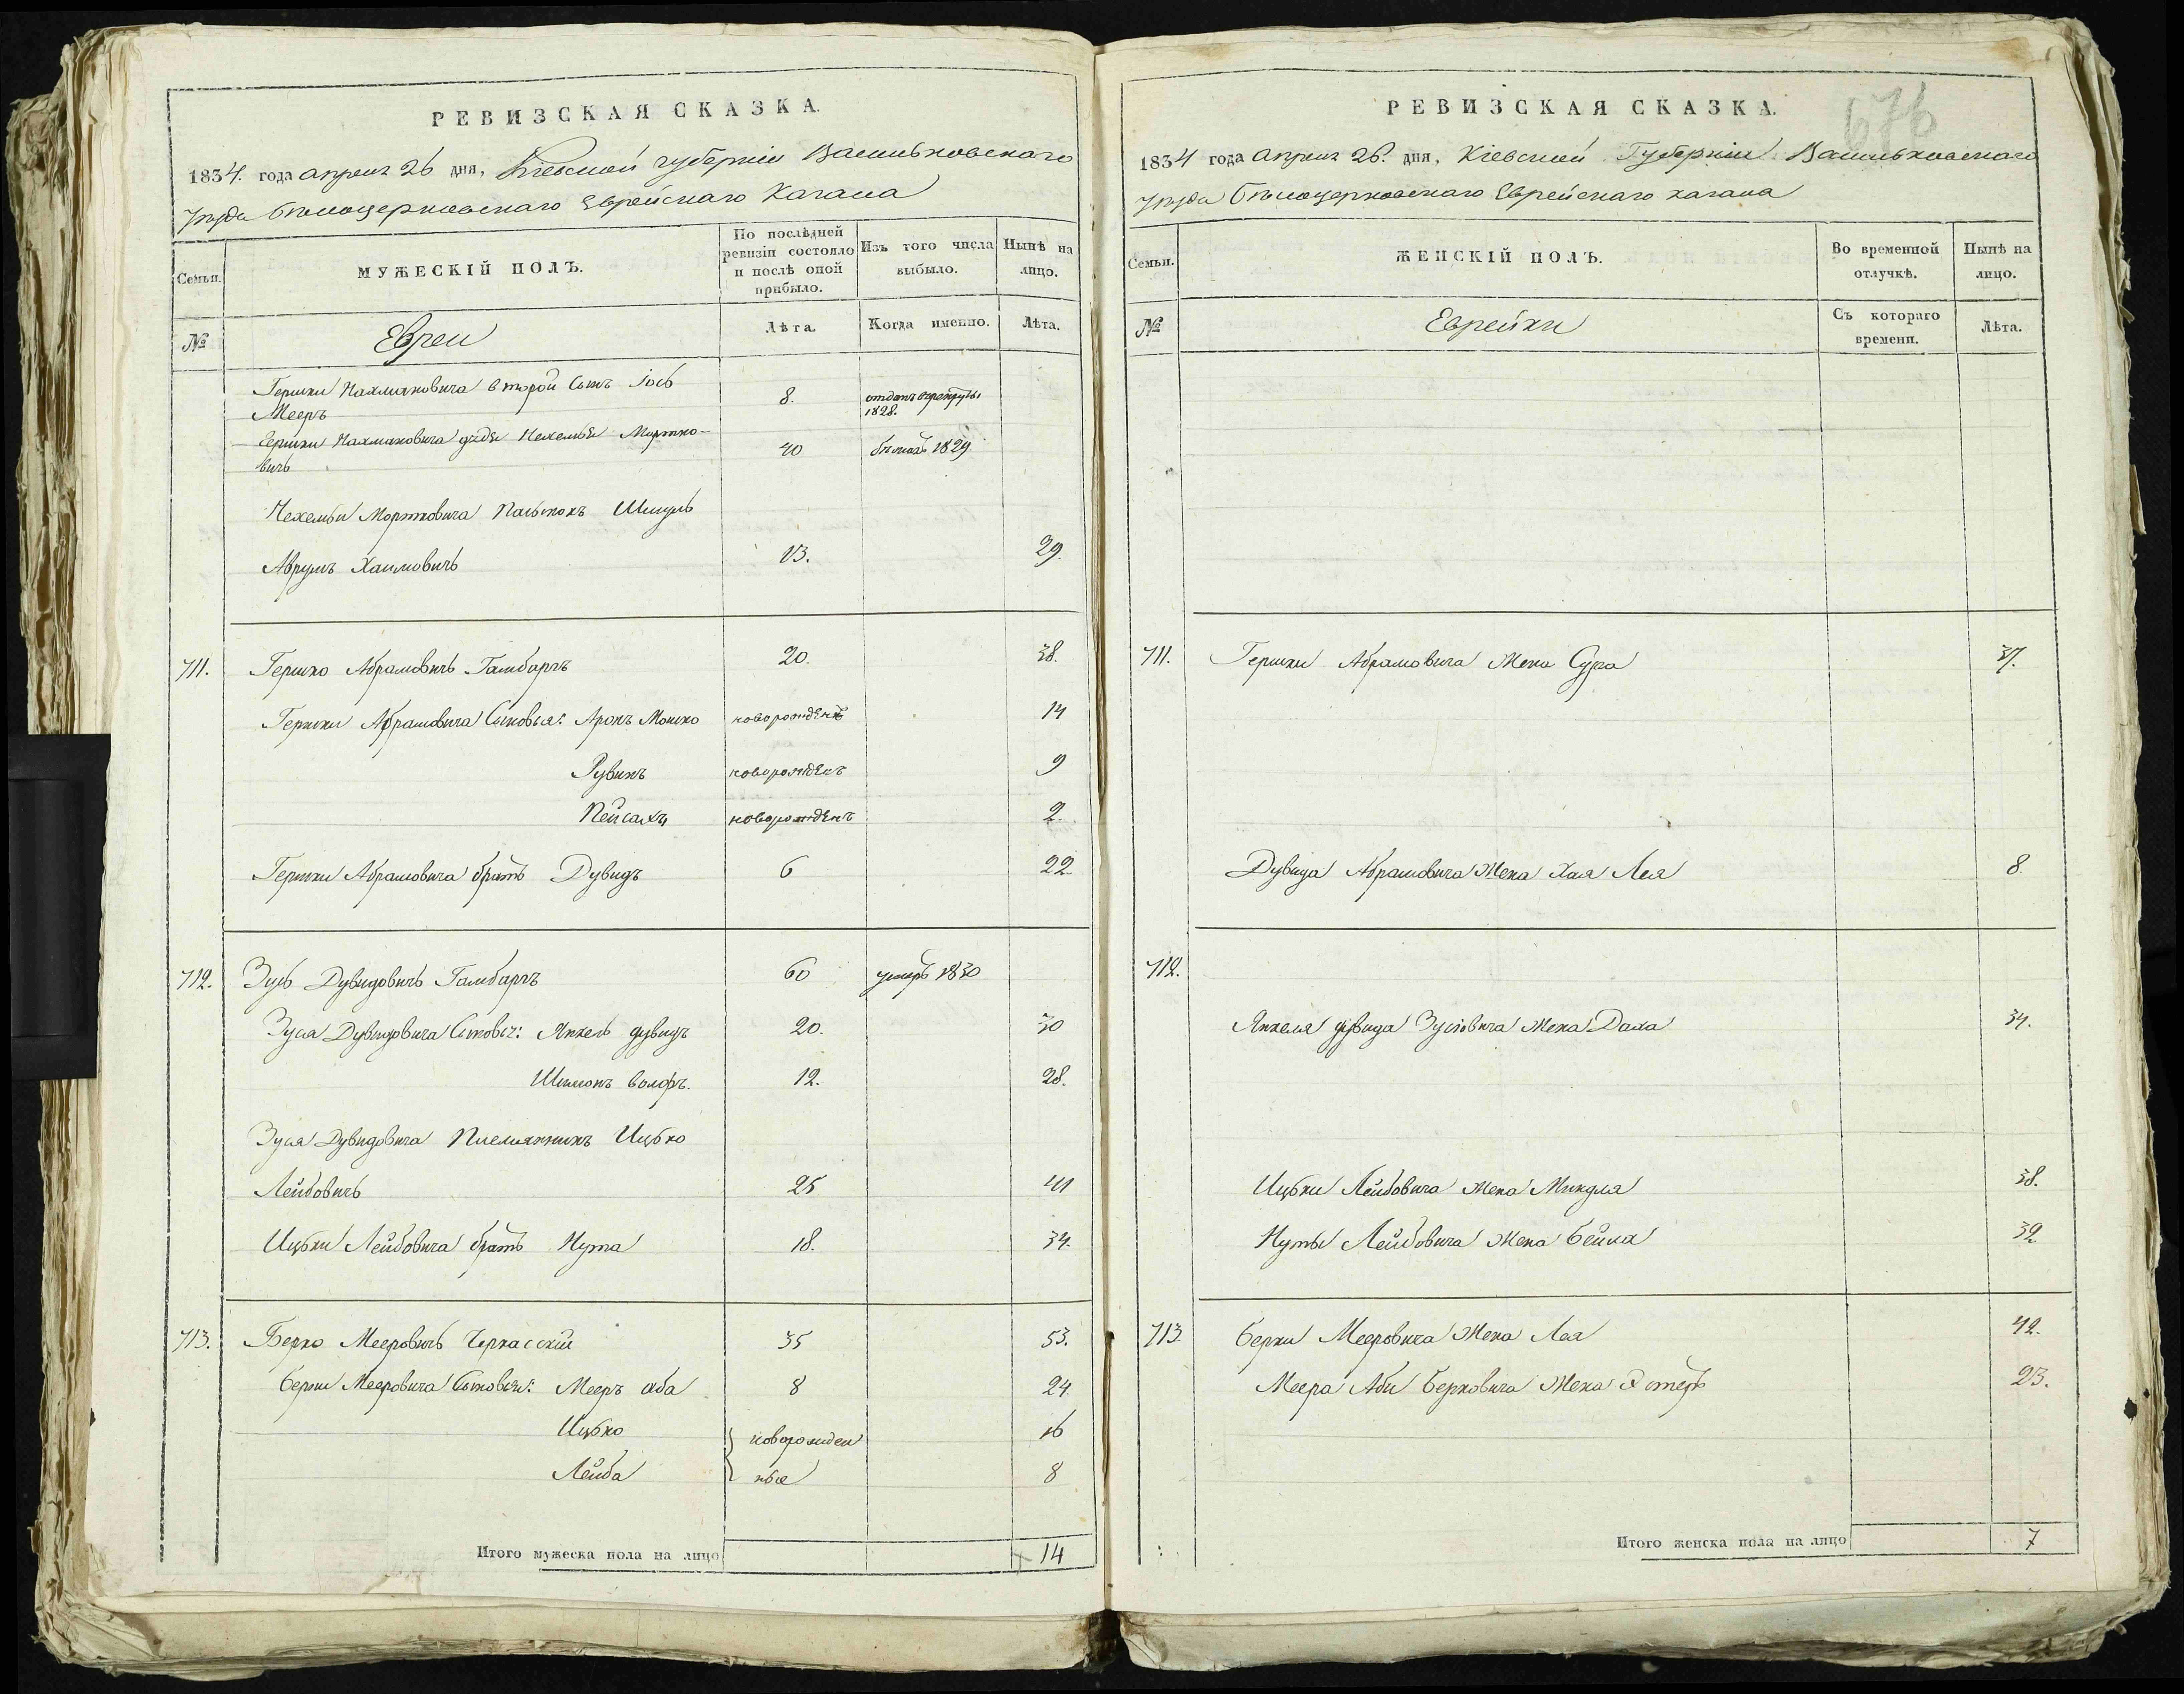 РЕВИЗСКАЯ СКАЗКА.
1834. года апреля 26 дня, Кіевской губерніи Васильковскаго
уѣзда бѣлоцерковскаго Еврейскаго Кагала
Семьи.
МУЖЕСКІЙ ПОЛЪ.
По послѣдней ревизіи состояло и послѣ оной прибыло.
Изъ того числа выбыло.
Нынѣ на лицо.
№
Евреи
Лѣта.
Когда именно.
Лѣта.
Гершки Нахмановича второй Сынъ Іось 8. отданъ врекруты
Мееръ 1828.
Гершки Нахмановича дядя Нехемья Мортко- 40 бѣжалъ 1829
вичь
Нехемьи Мортковича Пасынокъ Шмуль
Аврумъ Хаимовичь 13. 29.
711. Гершко Абрамовичь Гамбаргъ 20. 38.
Гершки Абрамовича Сыновья: Аронъ Мошко новорожденъ 14
Рувинъ новорожденъ 9
Пейсахъ новорожденъ 2.
Гершки Абрамовича братъ Дувидъ 6 22
712. Зусь Дувидовичь Гамбаргъ 60 умеръ 1830
Зуся Дувидовича Сыновья: Янкель дувидъ 20. 30
Шимонъ волфъ. 12. 28.
Зуся Дувидовича Племянникъ Ицько
Лейбовичь 25 41
Ицьки Лейбовича братъ Нута 18. 34.
713. Берко Мееровичь Черкасскій 35 53.
Берки Мееровича Сыновья: Мееръ аба 8 24
Ицько новорожден 16
Лейба ные 8
Итого мужеска пола на лицо 14
РЕВИЗСКАЯ СКАЗКА.
676
1834 года апреля 26. дня, Кіевской Губерніи Васильковскаго
уѣзда бѣлоцерковскаго Еврейскаго кагала
Семьи.
ЖЕНСКІЙ ПОЛЪ.
Во временной отлучкѣ.
Нынѣ на лицо.
№
Еврейки
Съ котораго времени.
Лѣта.
711. Гершки Абрамовича Жена Сура 37.
Дувида Абрамовича Жена Хая Лея 8
712.
Янкеля дувида Зусіовича Жена 34.
Ицьки Лейбовича Жена Миндля 38.
Нуты Лейбовича Жена Бейла 32
713 Берки Мееровича Жена Лея 42.
Меера Абы Берковича Жена Эстеръ 23.
Итого женска пола на лицо 7